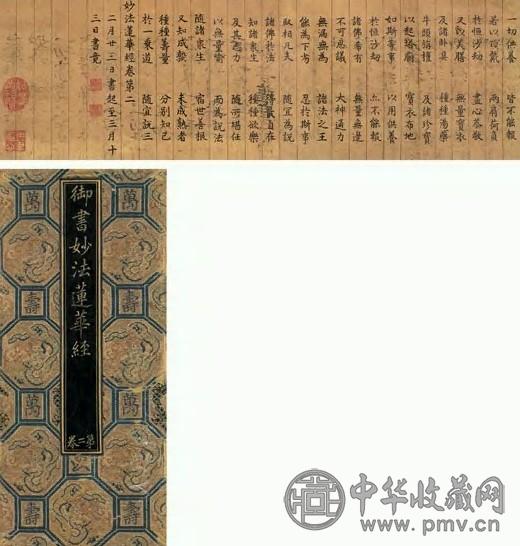 一切供養 皆不能報
若以頂戴 兩肩荷負
於恒沙劫 盡心恭敬
又以美膳 無量寶衣
及諸臥具 種種湯藥
牛頭栴檀 及諸珍寶
以起塔廟 寶衣布地
如斯等事 以用供養
於恒沙劫 亦不能報
諸佛希有 無量無邊
不可思議 大神通力
無漏無為 諸法之王
能為下劣 忍於斯事
取相凡夫 隨宜為說
諸佛於法 得最自在
知諸眾生 種種欲樂
及其志力 隨所堪任
以無量喻 而為說法
隨諸眾生 宿世善根
又知成熟 未成熟者
種種籌量 分別知已
於一乘道 隨宜說三
妙法蓮華經卷第二
二月廿三日書起至三月十
三日書竟
御書妙法蓮華經
第二卷
萬
壽
萬
壽
萬
壽
萬
壽
中华收藏网
www.pmv.cn